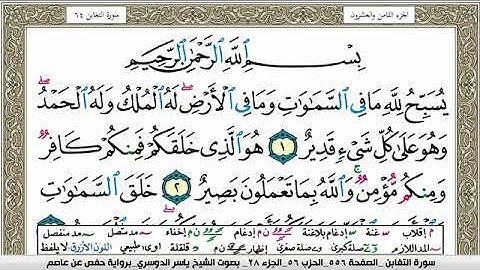 الجزء الثامن والعشرون
سورة التغابن ٦٤
بِسْمِ ٱللَّهِ ٱلرَّحْمَٰنِ ٱلرَّحِيمِ
يُسَبِّحُ لِلَّهِ مَا فِى ٱلسَّمَٰوَٰتِ وَمَا فِى ٱلْأَرْضِ ۖ لَهُ ٱلْمُلْكُ وَلَهُ ٱلْحَمْدُ ۖ
وَهُوَ عَلَىٰ كُلِّ شَىْءٍ قَدِيرٌ ١ هُوَ ٱلَّذِى خَلَقَكُمْ فَمِنكُمْ كَافِرٌ
وَمِنكُم مُّؤْمِنٌ ۚ وَٱللَّهُ بِمَا تَعْمَلُونَ بَصِيرٌ ٢ خَلَقَ ٱلسَّمَٰوَٰتِ
م / إقلاب س غنة إدغام بلاغنة ن م إدغام ن م إخفاء مد متصل مد منفصل
المد اللازم صلة كبرى صلة صغرى إظهار قلقلة اوى / طبيعي اللون الأزرق لا يلفظ
سورة التغابن _الصفحة ٥٥٦_ الحزب ٥٦_ الجزء ٢٨_ بصوت الشيخ ياسر الدوسري_ برواية حفص عن عاصم